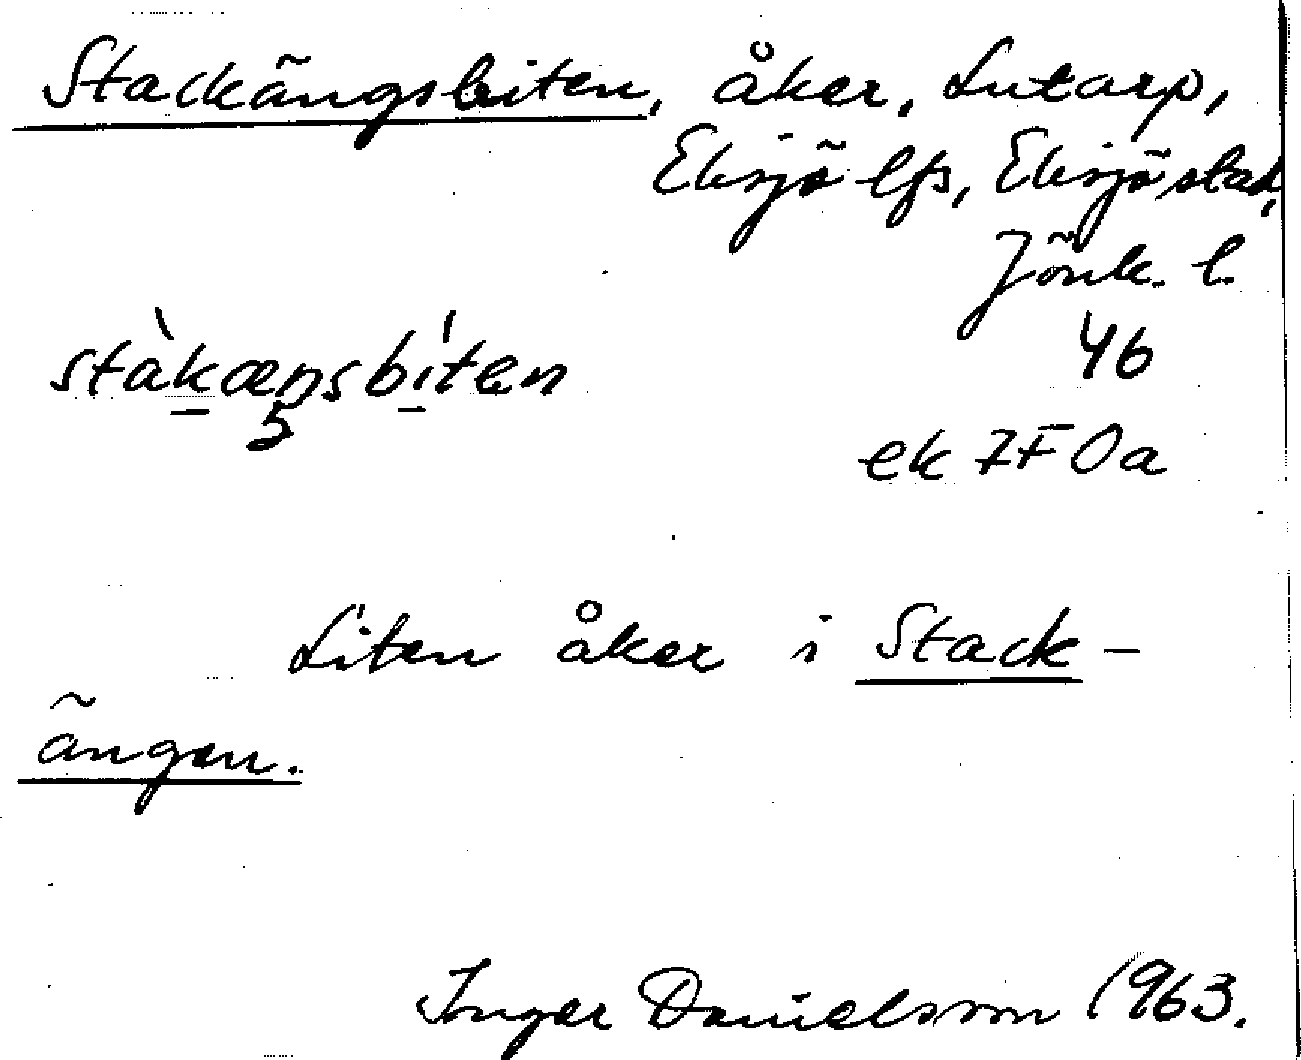 Stackängsbiten, åker, Lutarp,
Eksjö lfs, Eksjö stad,
Jönk. l.
stàkæŋsbíten
46
ek 7F0a
Liten åker i Stack-
ängen.
Inger Danielsson 1963.